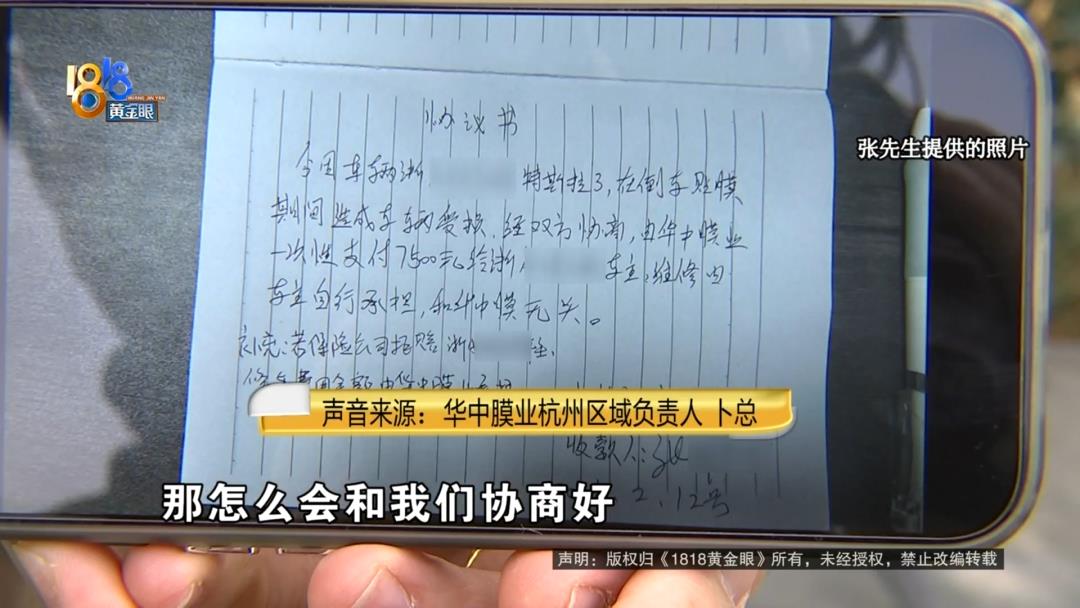 1818
HUANG JIN YAN
黄金眼
张先生提供的照片
协议书
今因车辆浙 特斯拉3，在倒车贴膜
期间造成车辆受损，经双方协商，由华中膜业
一次性支付7500元给浙 车主，维修由
车主自行承担，和华中膜无关。
补充：若保险公司拒赔 浙
声音来源：华中膜业杭州区域负责人 卜总
收款人：张
2.12号
那怎么会和我们协商好
声明：版权归《1818黄金眼》所有，未经授权，禁止改编转载